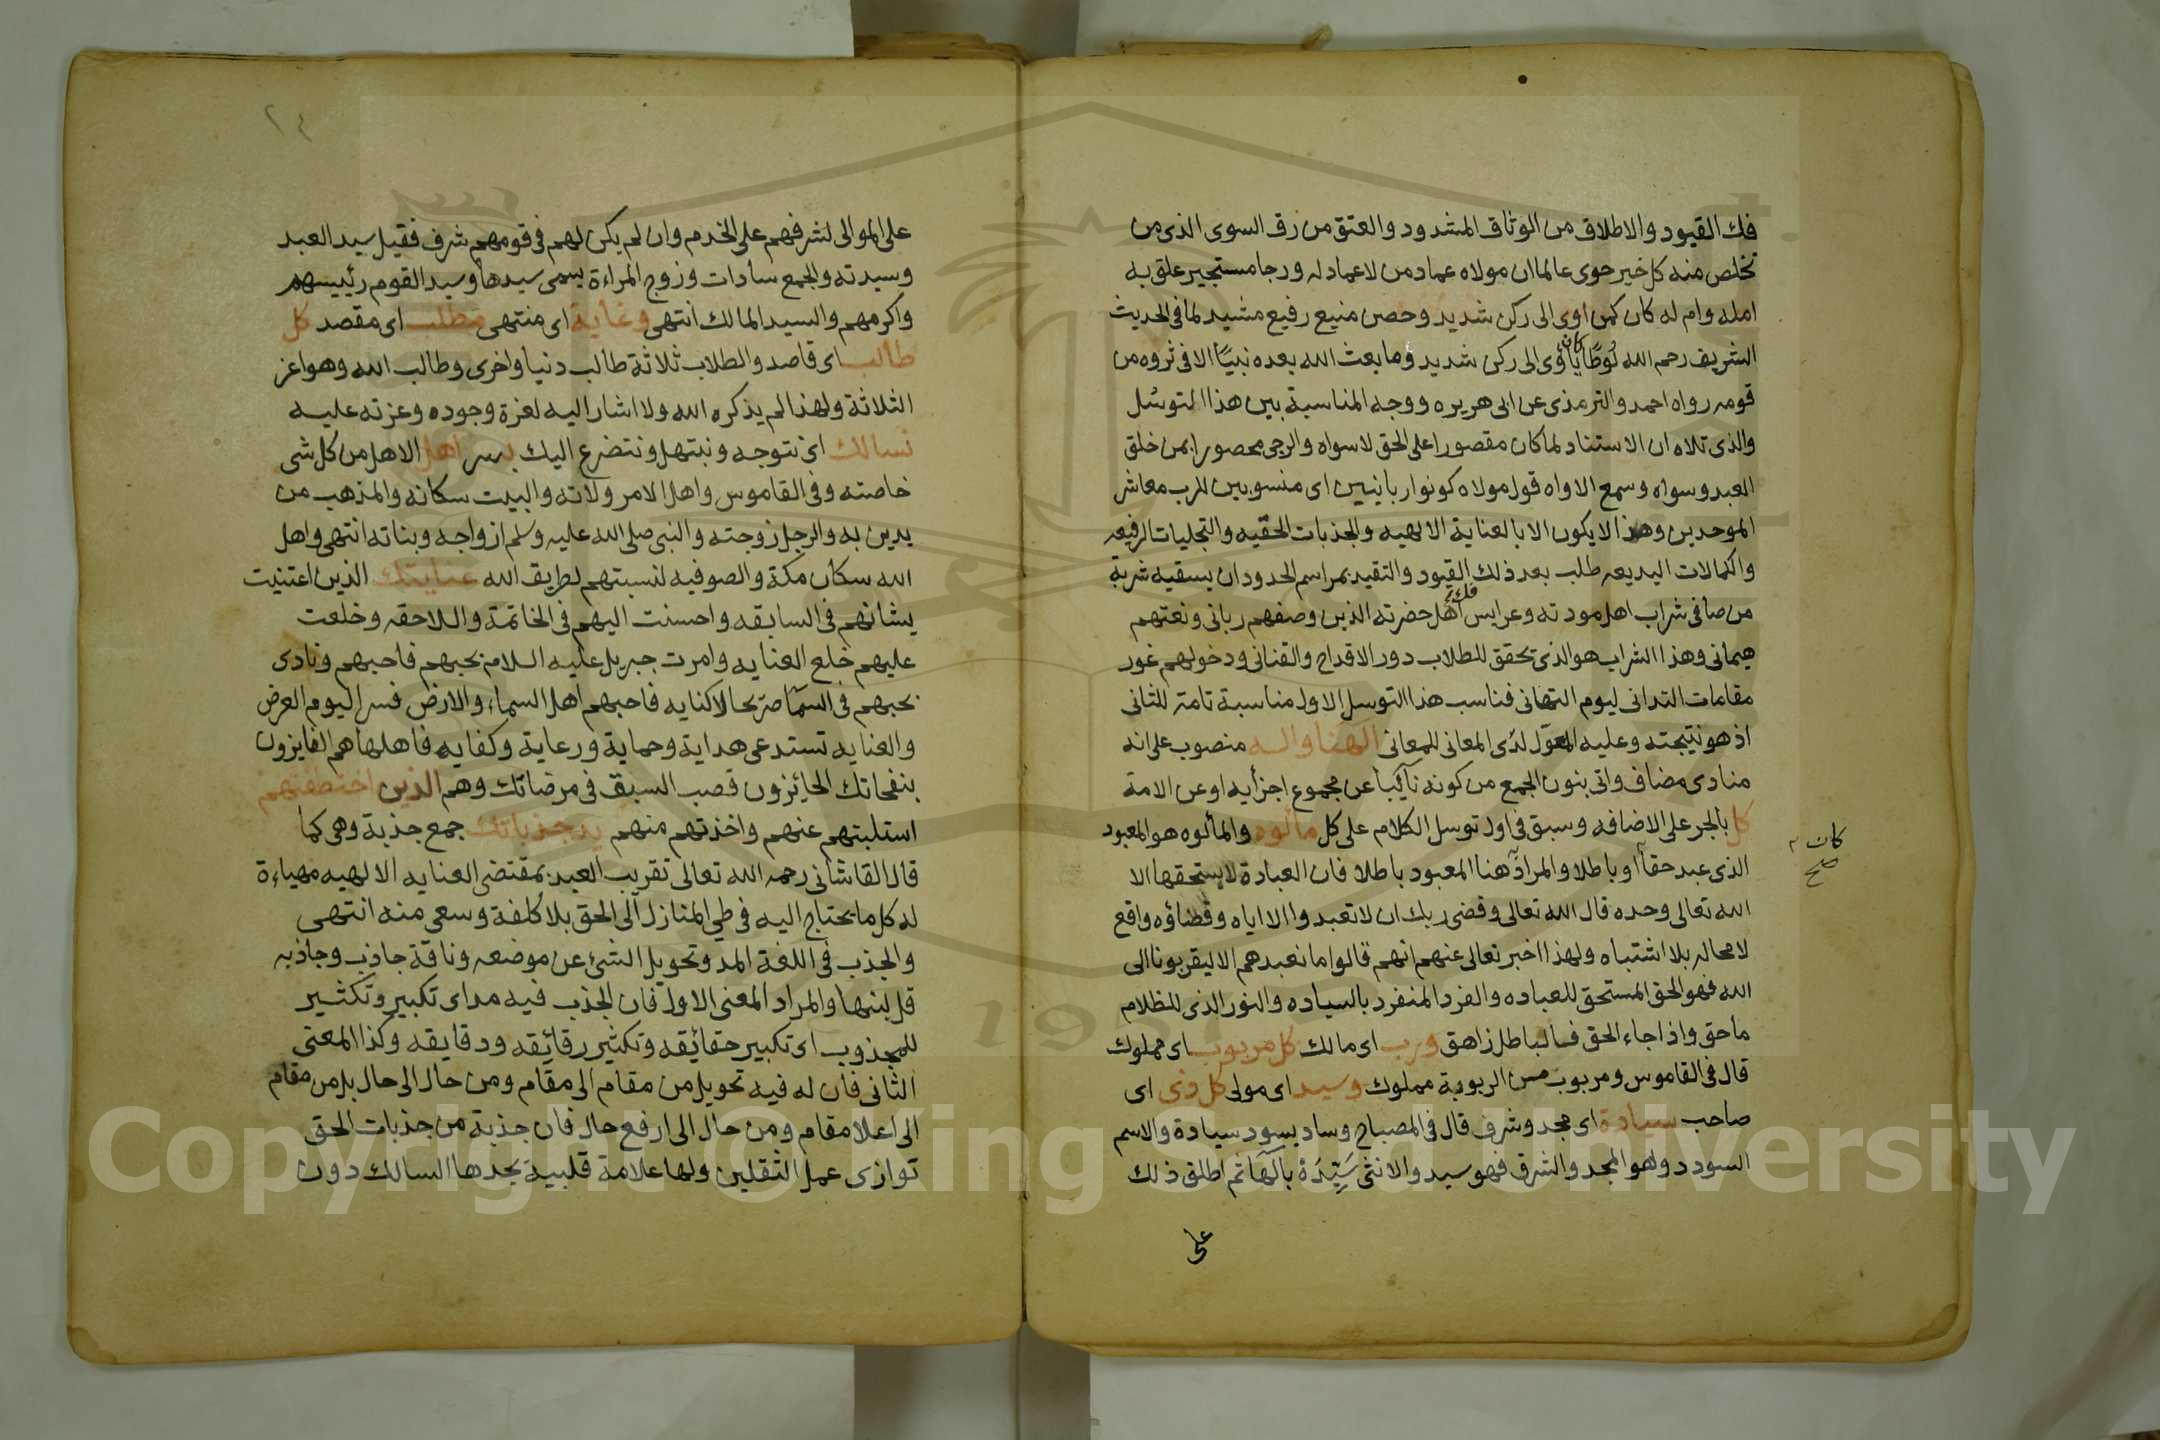 فك القيود والاطلاق من الوثاق المشدود والعتق من رق السوى الذى من
تخلص منه كل خير حوى عالما ان مولاه عماد من لا عماد له ورجا مستجير علق به
امله وام له كان كمن اوى الى ركن شديد وحصن منيع رفيع مشيد لما فى الحديث
الشريف رحم الله لوطًا كان يأوى الى ركن شديد وما بعث الله بعده نبيًا الا فى ثروه من
قومه رواه احمد والترمذى عن ابى هريره ووجه المناسبة بين هذا التوسل
والذى تلاه ان الاستناد لما كان مقصورا على الحق لا سواه والرجى محصورا بمن خلق
العبد وسواه وسمع الاواه قول مولاه كونوا ربانيين اى منسوبين للرب معاشر
الموحدين وهذا لا يكون الا بالعناية الالهيه والجذبات الحقيه والتجليات الرفيعه
والكمالات البديعه طلب بعد ذلك فك القيود والتقيد بمراسم الحدود ان يسقيه شربة
من صافى شراب اهل مودته وعرايس اهل حضرته الذين وصفهم ربانى ونعتهم
هيمانى وهذا الشراب هو الذى تحقق للطلاب دور الاقداح والقنانى ودخولهم غور
مقامات التدانى ليوم التهانى فناسب هذا التوسل الاول مناسبة تامة للثانى
اذ هو نتيجته وعليه المعوّل لدى المعانى للمعانى الهنا واله منصوب على انه
منادى مضاف واتى بنون الجمع من كونه نآئبا عن مجموع اجزأيه او عن الامة
كل بالجر على الاضافه وسبق فى اول توسل الكلام على كل مألوه والمألوه هو المعبود
الذى عبد حقا او باطلا والمراد هنا المعبود باطلا فان العبادة لا يستحقها الا
الله تعالى وحده قال الله تعالى وقضى ربك ان لا تعبدوا الا اياه وقضاؤه واقع
لا محاله بلا اشتباه ولهذا اخبر تعالى عنهم انهم قالوا ما نعبدهم الا ليقربونا الى
الله فهو الحق المستحق للعباده والفرد المنفرد بالسياده والنور الذى للظلام
ماحق واذا جاء الحق فالباطل زاهق ورب اى مالك كل مربوب اى مملوك
قال فى القاموس ومربوب من الربوبة مملوك وسيد اى مولى كل ذى اى
صاحب سيادة اى مجد وشرف قال فى المصباح وساد يسود سيادة والاسم
السودد وهو المجد والشرف فهو سيد والانثى سَيِّدَة بالهآ ثم اطلق ذلك
على
كان
صح
٢٤
على الموالى لشرفهم على الخدم وان لم يكن لهم فى قومهم شرف فقيل سيد العبد
وسيدته والجمع سادات وزوج المراءة يسمى سيدها وسيد القوم رئيسهم
واكرمهم والسيد المالك انتهى وغاية اى منتهى مطلب اى مقصد كل
طالب اى قاصد والطلاب ثلاثة طالب دنيا واخرى وطالب الله وهو اعز
الثلاثة ولهذا لم يذكره الله ولا اشار اليه لعزة وجوده وعزته عليه
نسالك اى نتوجه ونبتهل ونتضرع اليك بسر اهل الاهل من كل شى
خاصته وفى القاموس واهل الامر ولاته والبيت سكانه والمذهب من
يدين به والرجل زوجته والنبى صلى الله عليه وسلم ازواجه وبناته انتهى واهل
الله سكان مكة والصوفيه لنسبتهم لطريق الله عنايتك الذين اعتنيت
بشانهم فى السابقه واحسنت اليهم فى الخاتمة واللاحقه وخلعت
عليهم خلع العنايه وامرت جبريل عليه السلام بحبهم فاحبهم ونادى
بحبهم فى السمآ صريحا لا كنايه فاحبهم اهل السماء والارض فسر اليوم العرض
والعنايه تستدعى هداية وحماية ورعاية وكفايه فاهلها هم الفايزون
بنفحاتك الحائزون قصب السبق فى مرضاتك وهم الذين اختطفتهم
استلبتهم عنهم واخذتهم منهم يد جذباتك جمع جذبة وهى كما
قال القاشانى رحمه الله تعالى تقريب العبد بمقتضى العنايه الالهيه مهياءة
له كل ما يحتاج اليه فى طي المنازل الى الحق بلا كلفة وسعى منه انتهى
والجذب فى اللغة المد وتحويل الشئ عن موضعه وناقة جاذب وجاذبه
قل لبنها والمراد المعنى الاول فان الجذب فيه مد اى تكبير وتكثير
للمجذوب اى تكبير حقائقه وتكثير رقائقه ودقايقه وكذا المعنى
الثانى فان له فيه تحويل من مقام الى مقام ومن حال الى حال بل من مقام
الى اعلا مقام ومن حال الى ارفع حال فان جذبة من جذبات الحق
توازى عمل الثقلين ولها علامة قلبية يجدها السالك دون
Copyright © King Saud University